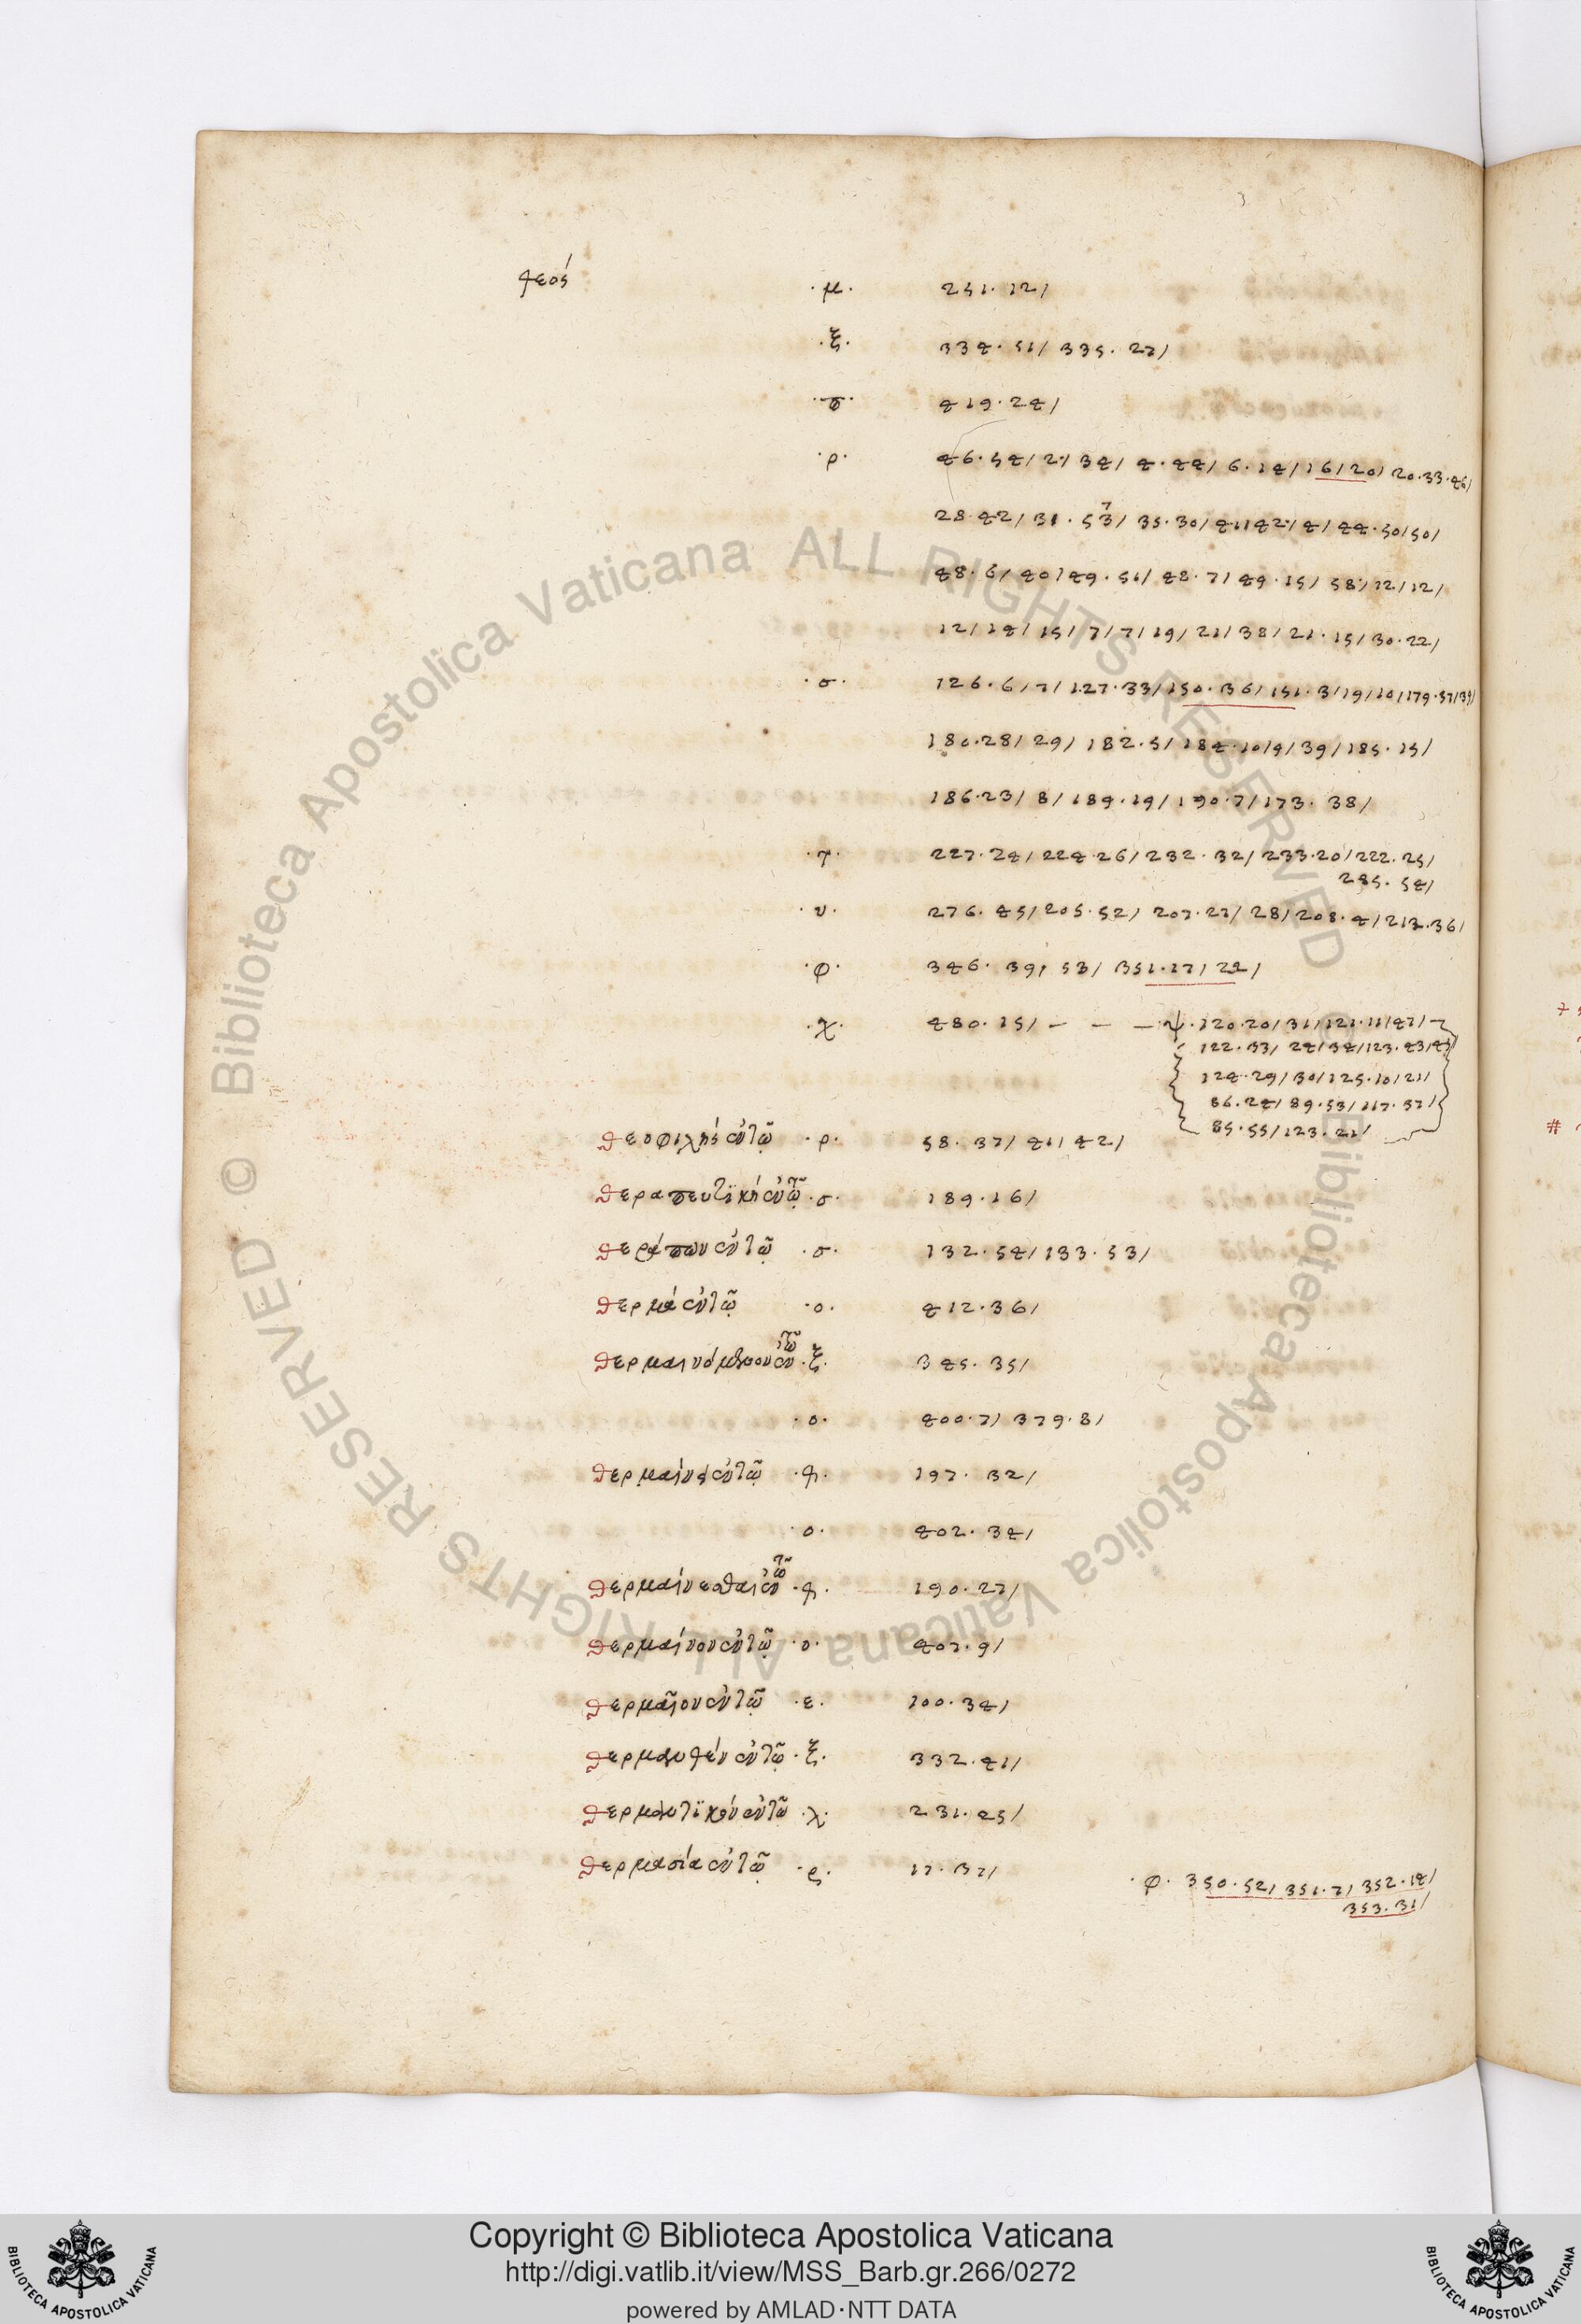 θεός ·μ· 251·12/
·ξ· 334·51/ 335·27/
·π· 419·24/
·ρ· 46·54/2/34/4·44/6·14/16/20/20·33·46/
28·42/31·53/35·30/41/42/4/44·50/50/
48·6/40/49·51/48·7/49·15/58/12/12/
12/14/15/7/7/19/21/38/21·15/30·22/
·σ· 126·6/7/127·33/150·36/151·3/19/10/179·37/39/
180·28/29/182·5/184·10/9/39/185·15/
186·23/8/189·19/190·7/173·38/
·τ· 227·24/224·26/232·32/233·20/222·25/
285·54/
·υ· 276·45/205·52/207·27/28/208·4/213·36/
·φ· 346·39/53/351·17/22/
·χ· 480·15/ – – – ψ·120·20/31/121·11/47/
122·33/24/34/123·43/
124·29/30/125·10/21/
86·24/89·53/117·37/
85·55/123·21/
θεοφιλὴς ἐν τῷ ·ρ· 58·37/41/42/
θεραπευτϊκὴ ἐν τῷ ·σ· 189·16/
θεράπων ἐν τῷ ·σ· 132·54/133·53/
θερμὰ ἐν τῷ ·ο· 412·36/
θερμαινόμενον ἐν τῷ ·ξ· 345·35/
·ο· 400·7/379·8/
θερμαίνει ἐν τῷ ·θ· 197·32/
·ο· 402·34/
θερμαίνεσθαι ἐν τῷ ·θ· 190·27/
θερμαίνον ἐν τῷ ·ο· 407·9/
θερμαῖον ἐν τῷ ·ε· 100·34/
θερμανθὲν ἐν τῷ ·ξ· 332·41/
θερμαντϊκὸν ἐν τῷ ·λ· 231·45/
θερμασία ἐν τῷ ·ς· 17·37/ ·φ· 350·52/351·7/352·14/
353·31/
Copyright © Biblioteca Apostolica Vaticana
http://digi.vatlib.it/view/MSS_Barb.gr.266/0272
powered by AMLAD·NTT DATA
BIBLIOTECA APOSTOLICA VATICANA
BIBLIOTECA APOSTOLICA VATICANA
Biblioteca Apostolica Vaticana ALL RIGHTS RESERVED ©
Biblioteca Apostolica Vaticana ALL RIGHTS RESERVED ©